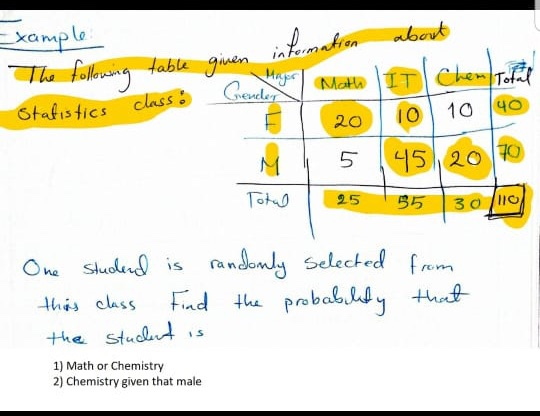 Example:
The following table given information about
Statistics class:
Major Gender Math IT Chem Total
F 20 10 10 40
M 5 45 20 70
Total 25 55 30 110
One student is randomly selected from
this class Find the probability that
the student is
1) Math or Chemistry
2) Chemistry given that male